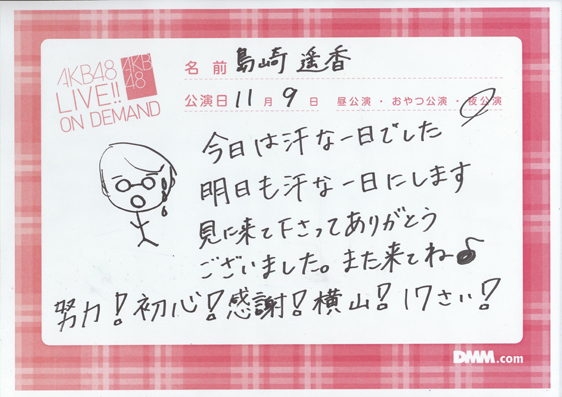 AKB48
LIVE!!
ON DEMAND
AKB
48
名前 島崎 遥香
公演日 11月9日 昼公演・おやつ公演・夜公演
今日は汗な一日でした
明日も汗な一日にします
見に来て下さってありがとう
ございました。また来てね♪
努力!初心!感謝!横山!17さい!
DMM.com